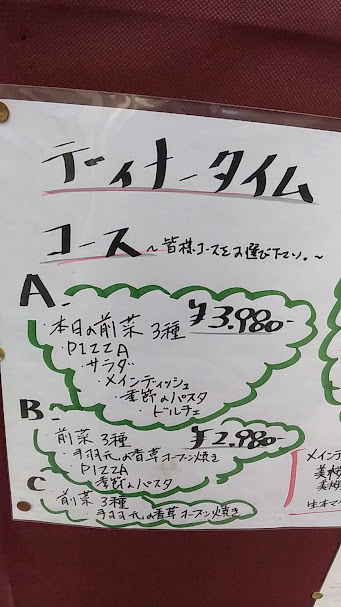 ディナータイム
コース 〜皆様コースをお選び下さい。〜
A
本日の前菜 3種 ¥3.980-
・PIZZA
・サラダ
・メインディッシュ
・季節のパスタ
・ドルチェ
B
前菜 3種 ¥2.980-
・手羽元の香草オーブン焼き
・PIZZA
・季節のパスタ
C
前菜 3種
・手羽元の香草オーブン焼き
メイン